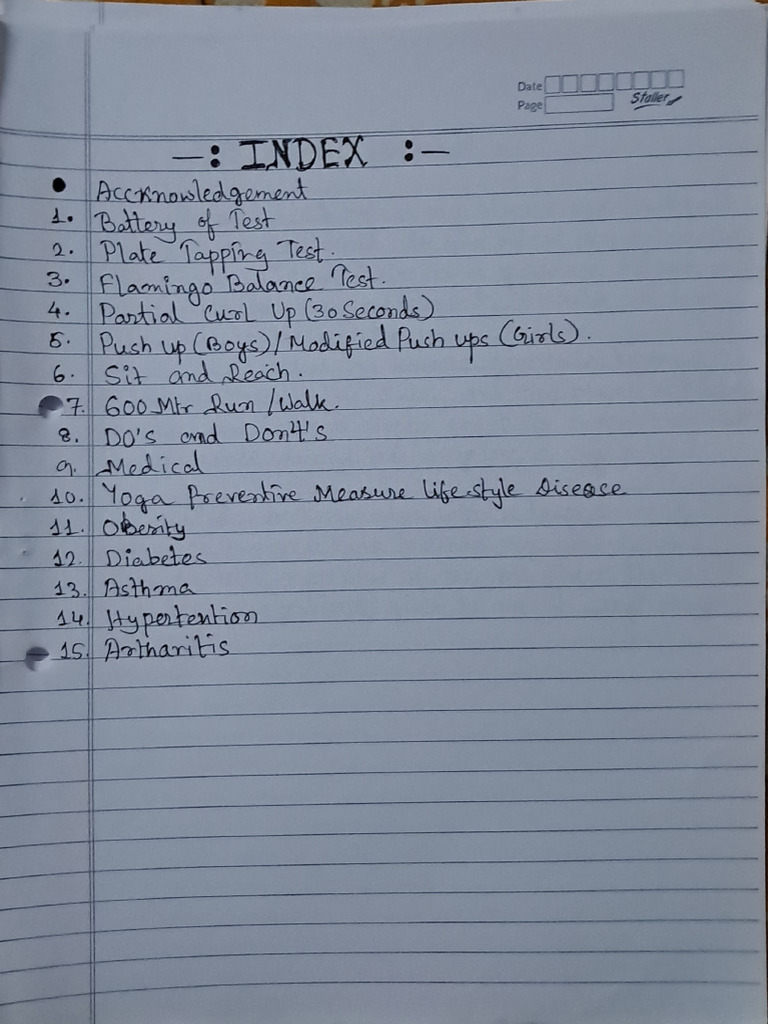 Date
Page
Staller
—: INDEX :—
• Accknowledgement
1. Battery of Test
2. Plate Tapping Test.
3. Flamingo Balance Test.
4. Partial Curl Up (30 Seconds)
5. Push up (Boys) / Modified Push ups (Girls).
6. Sit and Reach.
7. 600 Mtr Run / Walk.
8. DO's and Don4's
9. Medical
10. Yoga Preventive Measure life style Disease
11. Obesity
12. Diabetes
13. Asthma
14. Hypertention
15. Artharitis